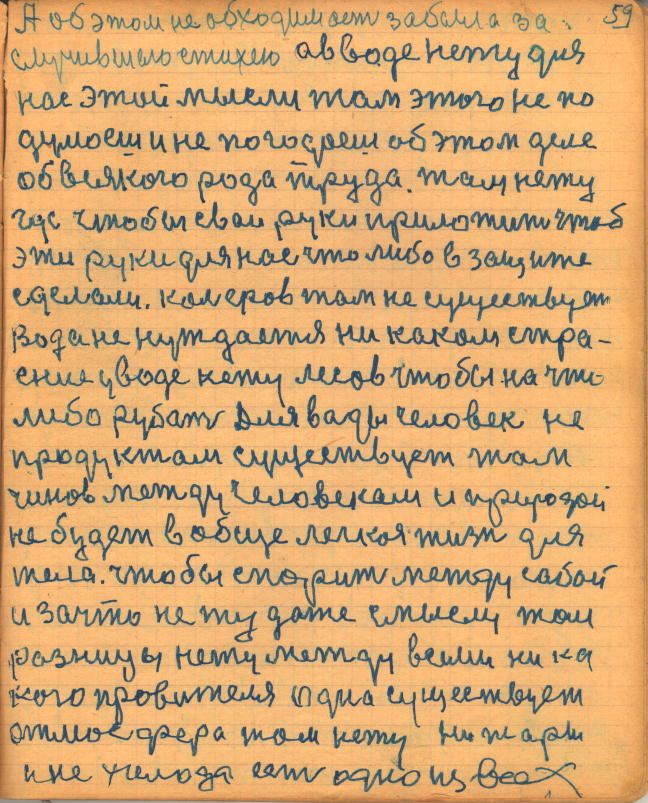 59
А об этом не обходимост забыла за
случившыю стихею а вводе нету для
нас этой мысли там этого не по
думоеш и не погодоеш об этом деле
об всякого рода труда. там нету
чтобы сваи руки приложить чтоб
эти руки для нас что либо в защите
сделали. колеров там не существует
вода не нуждается ни каком стра-
ение у воде нету лесов чтобы на что
либо рубат Для вады человек не
продуктам существует там
чинов между человекам и природой
не будет в обще легкоя жизн для
тела. чтобы спорит между сабой
и зачто нету даже смыслу там
разницы нету между всеми ни ка
кого провителя одна существует
атмосфера там нету ни жары
и не холода ест одно из всех